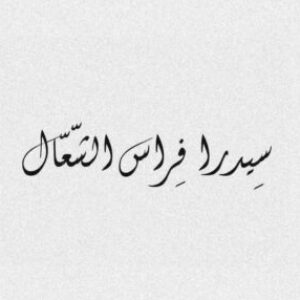 سِيدرا فِراس الشّعّال